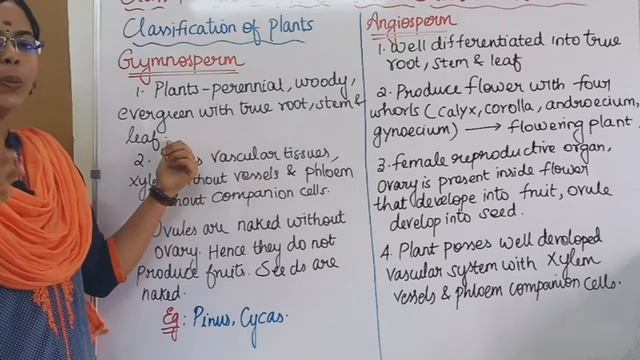 Classification of plants
Gymnosperm
1. Plants - perennial, woody,
evergreen with true root, stem &
leaf.
2. vascular tissues,
without vessels & phloem
without companion cells.
Ovules are naked without
ovary. Hence they do not
produce fruits. Seeds are
naked.
Eg: Pinus, Cycas.
Angiosperm
1. Well differentiated into true
root, stem & leaf
2. Produce flower with four
whorls (calyx, corolla, androecium,
gynoecium) → flowering plant.
3. female reproductive organ,
ovary is present inside flower
that develope into fruit, ovule
develop into seed.
4. Plant posses well devoloped
vascular system with xylem
vessels & phloem companion cells.